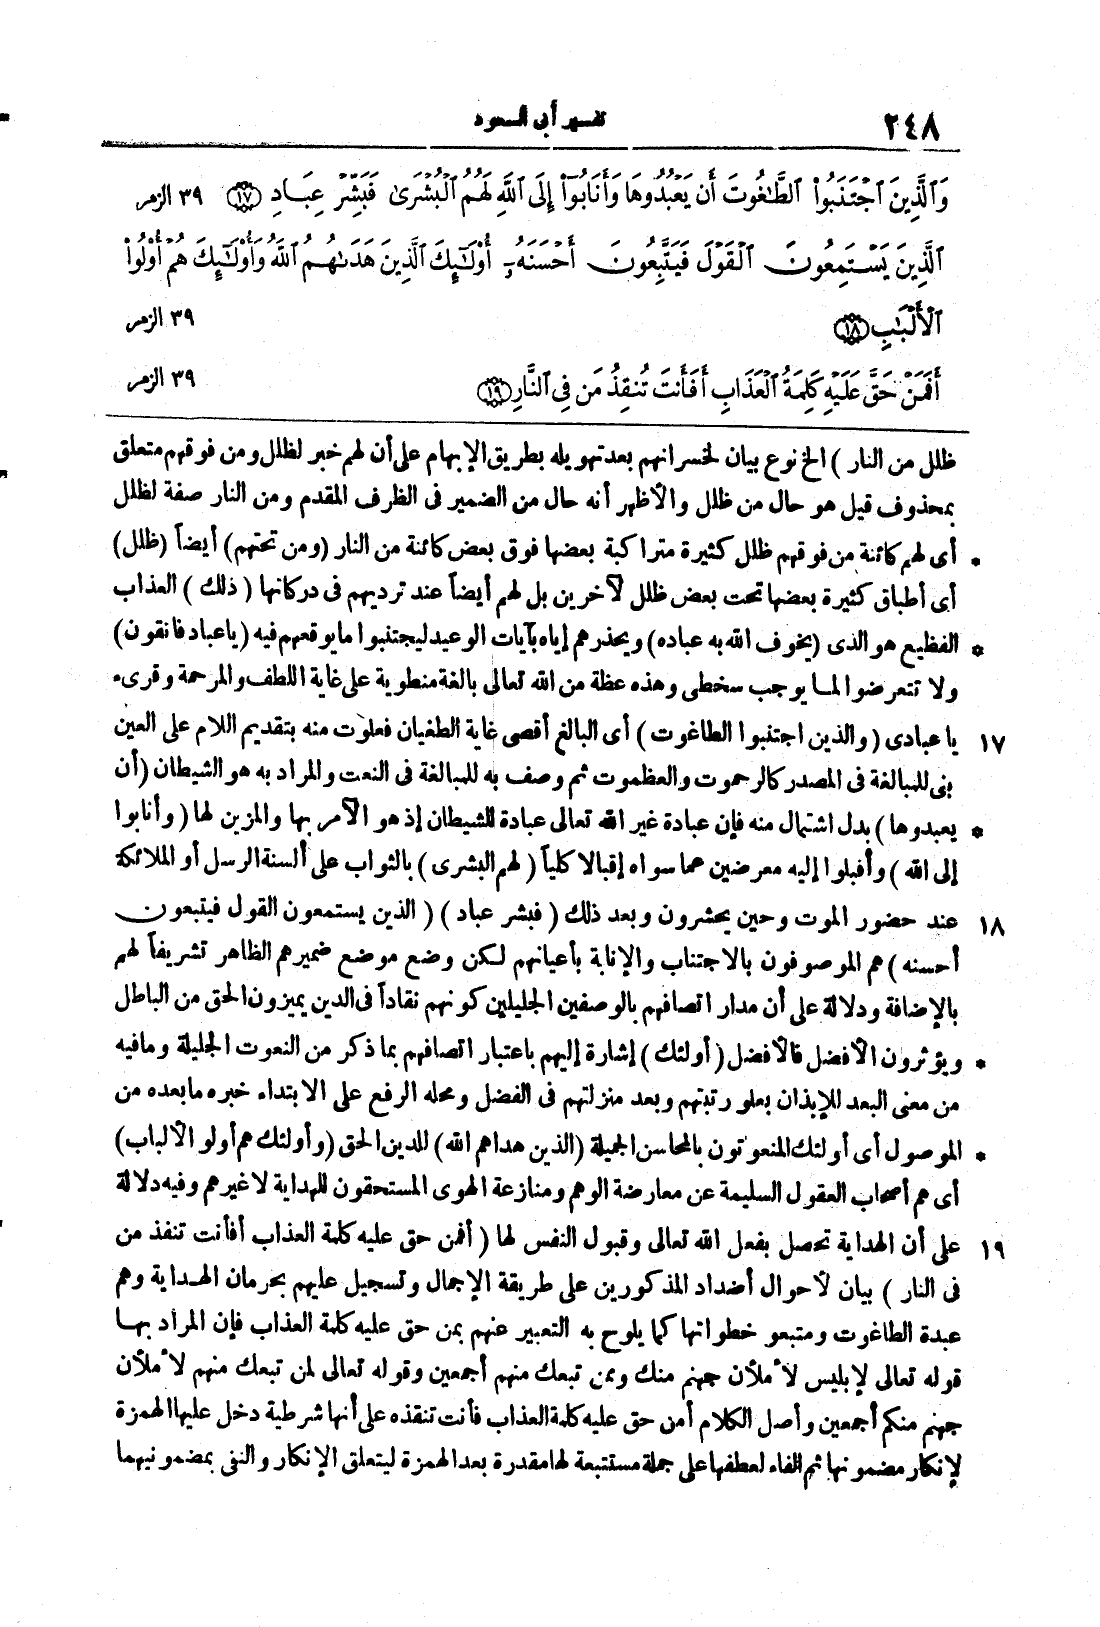 ٢٤٨
تفسير أبى السعود
وَٱلَّذِينَ ٱجْتَنَبُوا۟ ٱلطَّٰغُوتَ أَن يَعْبُدُوهَا وَأَنَابُوٓا۟ إِلَى ٱللَّهِ لَهُمُ ٱلْبُشْرَىٰ فَبَشِّرْ عِبَادِ ﴿١٧﴾ ٣٩ الزمر
ٱلَّذِينَ يَسْتَمِعُونَ ٱلْقَوْلَ فَيَتَّبِعُونَ أَحْسَنَهُۥٓ أُو۟لَٰٓئِكَ ٱلَّذِينَ هَدَىٰهُمُ ٱللَّهُ وَأُو۟لَٰٓئِكَ هُمْ أُو۟لُوا۟
ٱلْأَلْبَٰبِ ﴿١٨﴾ ٣٩ الزمر
أَفَمَنْ حَقَّ عَلَيْهِ كَلِمَةُ ٱلْعَذَابِ أَفَأَنتَ تُنقِذُ مَن فِى ٱلنَّارِ ﴿١٩﴾ ٣٩ الزمر
ظلل من النار ) الخ نوع بيان لخسرانهم بعد تهويله بطريق الإبهام على أن لهم خبر لظلل ومن فوقهم متعلق
بمحذوف قيل هو حال من ظلل والأظهر أنه حال من الضمير فى الظرف المقدم ومن النار صفة لظلل
* أى لهم كائنة من فوقهم ظلل كثيرة متراكبة بعضها فوق بعض كائنة من النار (ومن تحتهم) أيضاً (ظلل)
أى أطباق كثيرة بعضها تحت بعض ظلل لآخرين بل لهم أيضاً عند ترديهم فى دركاتها ( ذلك ) العذاب
* الفظيع هو الذى (يخوف الله به عباده) ويحذرهم إياه بآيات الوعيد ليجتنبوا ما يوقعهم فيه (يا عباد فاتقون)
ولا تتعرضوا لما يوجب سخطى وهذه عظة من الله تعالى بالغة منطوية على غاية اللطف والمرحمة وقرىء
١٧ يا عبادى ( والذين اجتنبوا الطاغوت ) أى البالغ أقصى غاية الطغيان فعلوت منه بتقديم اللام على العين
بنى للمبالغة فى المصدر كالرحموت والعظموت ثم وصف به للمبالغة فى النعت والمراد به هو الشيطان (أن
* يعبدوها ) بدل اشتمال منه فإن عبادة غير الله تعالى عبادة للشيطان إذ هو الآمر بها والمزين لها ( وأنابوا
إلى الله ) وأقبلوا إليه معرضين عما سواه إقبالا كلياً ( لهم البشرى ) بالثواب على ألسنة الرسل أو الملائكة
١٨ عند حضور الموت وحين يحشرون وبعد ذلك ( فبشر عباد ) ( الذين يستمعون القول فيتبعون
أحسنه ) هم الموصوفون بالاجتناب والإنابة بأعيانهم لكن وضع موضع ضميرهم الظاهر تشريفاً لهم
بالإضافة ودلالة على أن مدار اتصافهم بالوصفين الجليلين كونهم نقاداً فى الدين يميزون الحق من الباطل
* ويؤثرون الأفضل فالأفضل ( أولئك ) إشارة إليهم باعتبار اتصافهم بما ذكر من النعوت الجليلة وما فيه
من معنى البعد للإيذان بعلو رتبتهم وبعد منزلتهم فى الفضل ومحله الرفع على الابتداء خبره ما بعده من
* الموصول أى أولئك المنعوتون بالمحاسن الجميلة (الذين هداهم الله) للدين الحق (وأولئك هم أولو الألباب)
أى هم أصحاب العقول السليمة عن معارضة الوهم ومنازعة الهوى المستحقون للهداية لا غيرهم وفيه دلالة
١٩ على أن الهداية تحصل بفعل الله تعالى وقبول النفس لها ( أفمن حق عليه كلمة العذاب أفأنت تنقذ من
فى النار ) بيان لأحوال أضداد المذكورين على طريقة الإجمال وتسجيل عليهم بحرمان الهداية وهم
عبدة الطاغوت ومتبعو خطواتها كما يلوح به التعبير عنهم بمن حق عليه كلمة العذاب فإن المراد بها
قوله تعالى لإبليس لأملأن جهنم منك وممن تبعك منهم أجمعين وقوله تعالى لمن تبعك منهم لأملأن
جهنم منكم أجمعين وأصل الكلام أمن حق عليه كلمة العذاب فأنت تنقذه على أنها شرطية دخل عليها الهمزة
لإنكار مضمونها ثم الفاء لعطفها على جملة مستتبعة لها مقدرة بعد الهمزة ليتعلق الإنكار والنفى بمضمونيهما